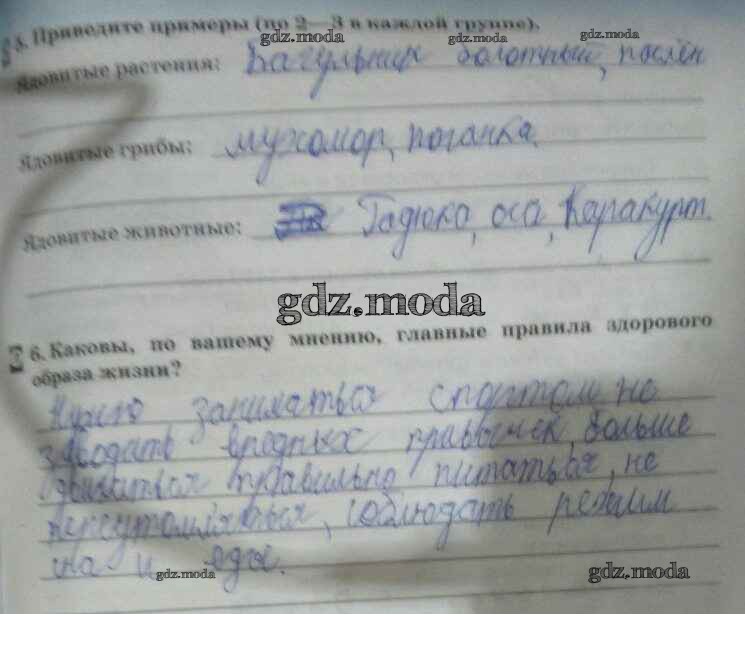 5. Приведите примеры (по 2—3 в каждой группе).
gdz.moda gdz.moda gdz.moda
Ядовитые растения: Багульник болотный, паслён
Ядовитые грибы: мухомор, поганка.
Ядовитые животные: Гадюка, оса, Каракурт.
gdz.moda
6. Каковы, по вашему мнению, главные правила здорового
образа жизни?
Нужно заниматься спортом, не
заводать вредных правычек, больше
двигаться правильно питаться, не
переутомляться, соблюдать режим
сна и еды.
gdz.moda gdz.moda